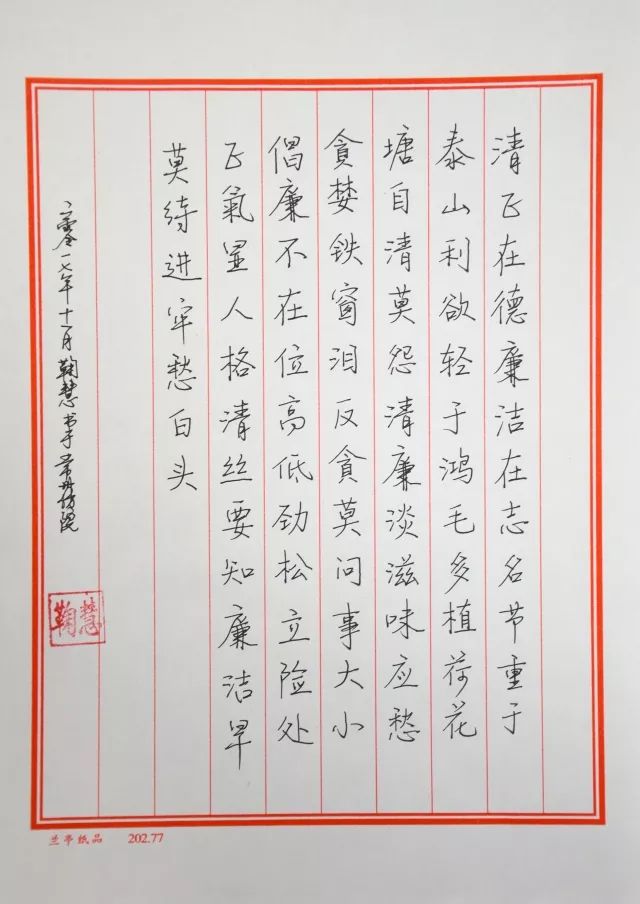 清正在德廉洁在志名节重于
泰山利欲轻于鸿毛多植荷花
塘自清莫怨清廉淡滋味应愁
貪婪铁窗泪反貪莫问事大小
倡廉不在位高低劲松立险处
正氣显人格清丝要知廉洁早
莫待进牢愁白头
一七年十一月鞠慧书于
鞠慧
兰亭纸品 202.77